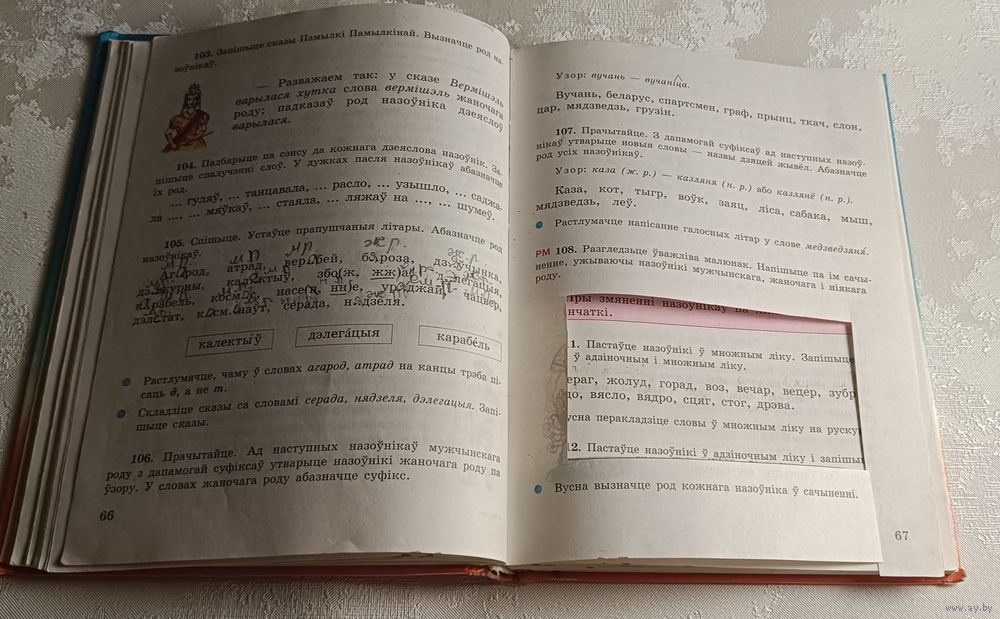 103. Запішыце сказы Памылкі Памылкінай. Вызначце род на-
зоўнікаў.
— Разважаем так: у сказе Вермішэль
варылася хутка слова вермішэль жаночага
роду; падказаў род назоўніка дзеяслоў
варылася.
104. Падбярыце па сэнсу да кожнага дзеяслова назоўнік. За-
пішыце спалучэнні слоў. У дужках пасля назоўнікаў абазначце
іх род.
... гуляў, ... танцавала, ... расло, ... узышло, ... саджа-
ла ..., ... мяўкаў, ... стаяла, ... ляжаў на ..., ... шумеў.
105. Спішыце. Устаўце прапушчаныя літары. Абазначце род
назоўнікаў.
м.р. ж.р.
Агарод, атрад, верабей, бяроза, дзяўчынка,
дзяжурны, калектыў, збожжа, дэлегацыя,
карабель, космас, насенне, ураджай, чацвер,
дэлегат, касманаўт, серада, нядзеля.
калекты́ў
дэлега́цыя
карабе́ль
Растлумачце, чаму ў словах агарод, атрад на канцы трэба пі-
саць д, а не т.
Складзіце сказы са словамі серада, нядзеля, дэлегацыя. Запі-
шыце сказы.
106. Прачытайце. Ад наступных назоўнікаў мужчынскага
роду з дапамогай суфіксаў утварыце назоўнікі жаночага роду па
ўзору. У словах жаночага роду абазначце суфікс.
66
Узор: вучань — вучаніца.
Вучань, беларус, спартсмен, граф, прынц, ткач, слон,
цар, мядзведзь, грузін.
107. Прачытайце. З дапамогай суфіксаў ад наступных назоў-
нікаў утварыце новыя словы — назвы дзяцей жывёл. Абазначце
род усіх назоўнікаў.
Узор: каза (ж. р.) — казляня (н. р.) або казлянё (н. р.).
Каза, кот, тыгр, воўк, заяц, ліса, сабака, мыш,
мядзведзь, леў.
Растлумачце напісанне галосных літар у слове медзведзяня́.
РМ 108. Разгледзьце ўважліва малюнак. Напішыце па ім сачы-
ненне, ужываючы назоўнікі мужчынскага, жаночага і ніякага
роду.
тры змяненні назоўнікаў па
нчаткі.
1. Пастаўце назоўнікі ў множным ліку. Запішыце
ў адзіночным і множным ліку.
ераг, жолуд, горад, воз, вечар, вецер, зубр
до, вясло, вядро, сцяг, стог, дрэва.
усна перакладзіце словы ў множным ліку на руску
2. Пастаўце назоўнікі ў адзіночным ліку і запішы
Вусна вызначце род кожнага назоўніка ў сачыненні.
67
www.ay.by